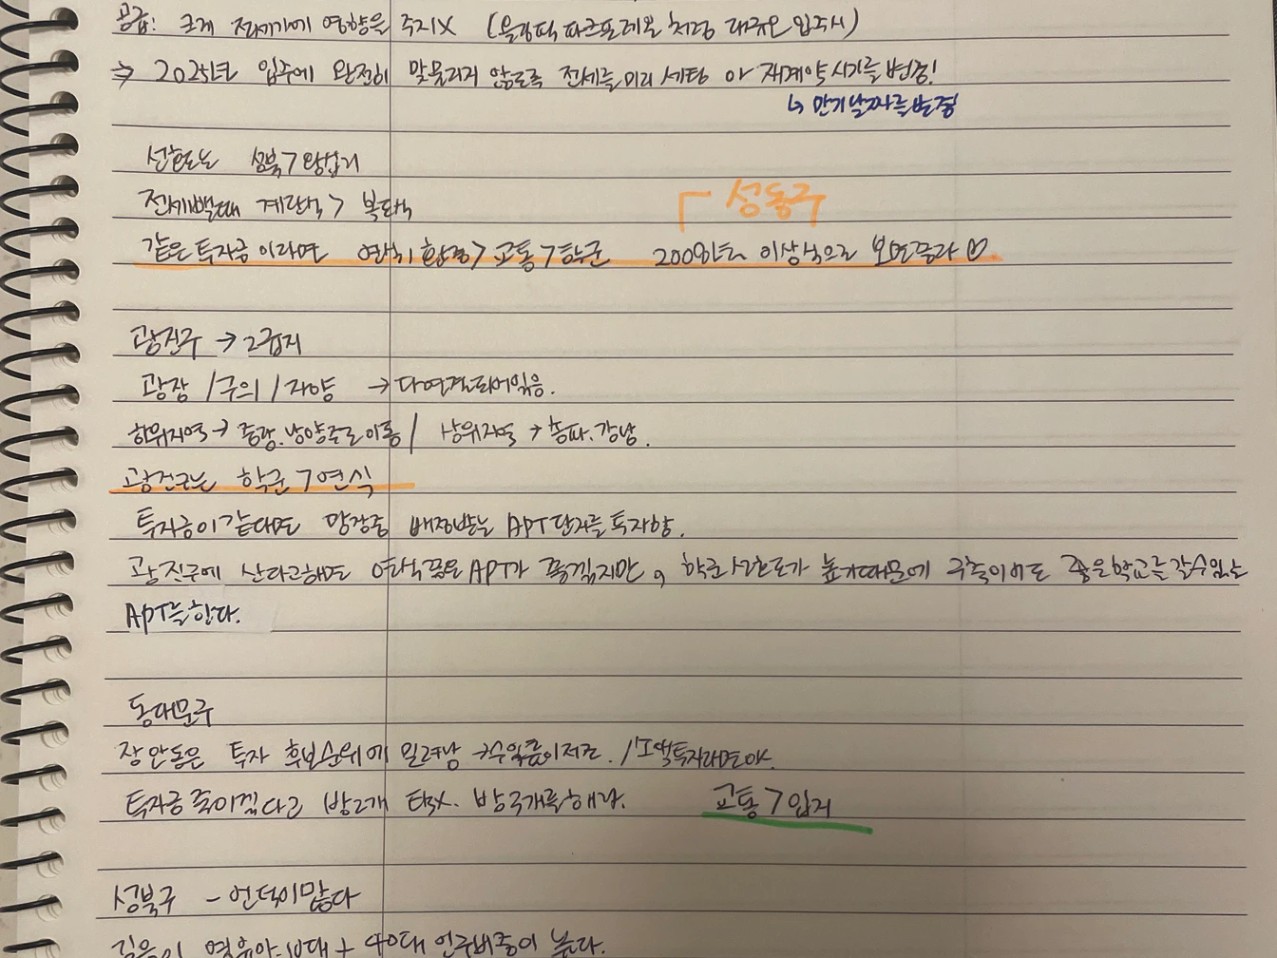 공급: 크게 전세가에 영향을 주지X (올림픽파크포레온처럼 대규모 입주시)
⇒ 2025년 입주에 완전히 맞물리지 않도록 전세를 미리 세팅 or 재계약시기를 변경!
↳ 만기날짜를 변경
선호도는 성북>왕십리
전세뺄때 계단식> 복도식
성동구
같은 투자금 이라면 연식, 환경> 교통>학군 2009년도 이상식으로 보면좋다♡.
광진구 → 2급지
광장 / 구의 / 자양 → 다연결되어있음.
하위지역→ 중랑.남양주로이동 / 상위지역 → 송파.강남.
광진구는 학군 > 연식
투자금이같다면 광장중 배정받는 APT단지를 투자함.
광진구에 산다고하면 연식좋은 APT가 좋겠지만, 학군선호도가 높기때문에 구축이어도 좋은학교를 갈수있는
APT를한다.
동대문구
장안동은 투자 후보순위에 밀려남 →수익률이저조. / 소액투자라면야.
투자금 줄이겠다고 방2개 타X. 방3개를해라. 교통 > 입지
성북구 - 언덕이많다
길음이 영유아.10대 + 40대 인구비중이 높다.